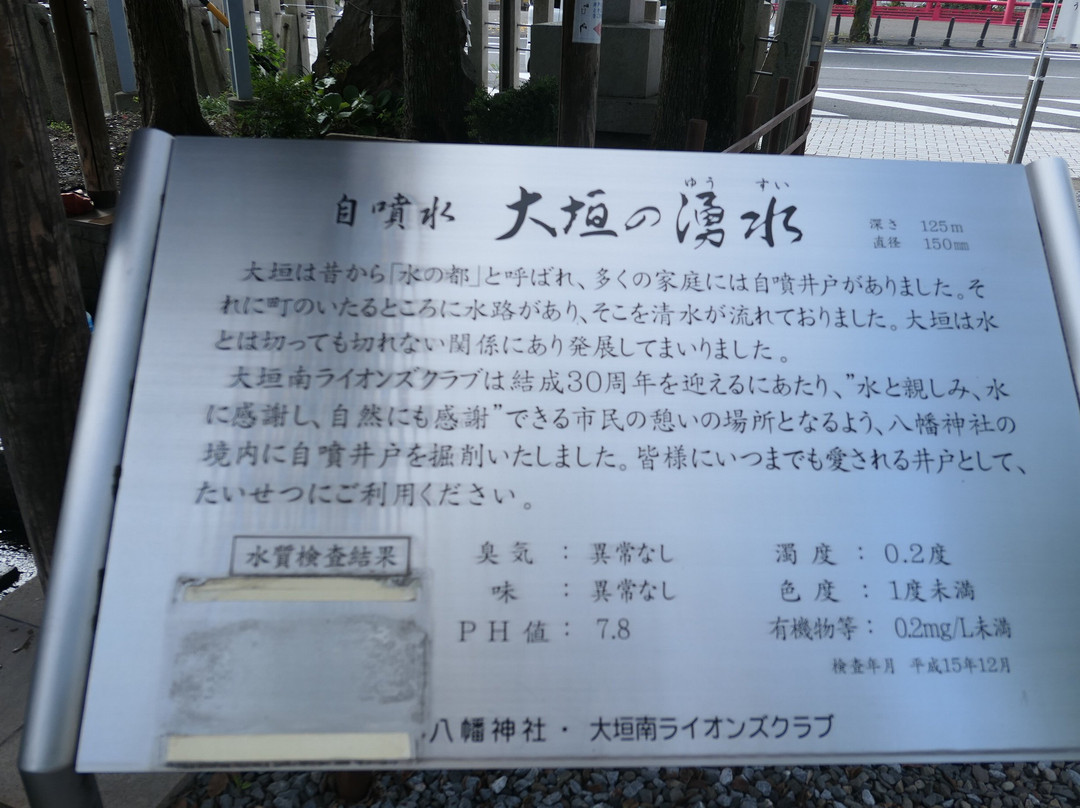 自噴水 大垣の湧水
ゆう すい
深さ 125m
直径 150㎜
大垣は昔から「水の都」と呼ばれ、多くの家庭には自噴井戸がありました。そ
れに町のいたるところに水路があり、そこを清水が流れておりました。大垣は水
とは切っても切れない関係にあり発展してまいりました。
大垣南ライオンズクラブは結成30周年を迎えるにあたり、"水と親しみ、水
に感謝し、自然にも感謝"できる市民の憩いの場所となるよう、八幡神社の
境内に自噴井戸を掘削いたしました。皆様にいつまでも愛される井戸として、
たいせつにご利用ください。
水質検査結果
臭気 : 異常なし 濁度 : 0.2度
味 : 異常なし 色度 : 1度未満
PH値 : 7.8 有機物等 : 0.2mg/L未満
検査年月 平成15年12月
八幡神社・大垣南ライオンズクラブ